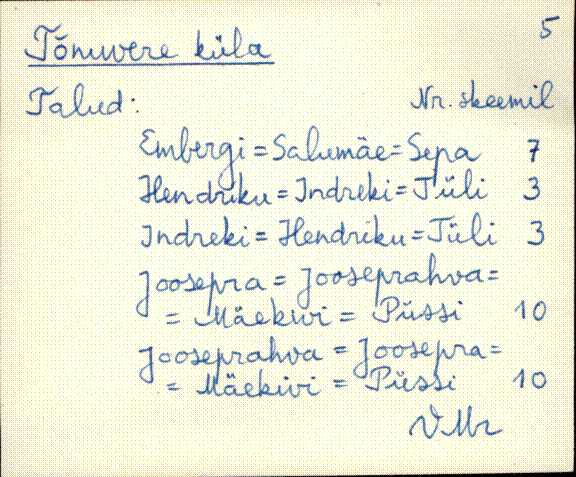 5
Tõnuvere küla
Talud: Nr. skeemil
Embergi = Salumäe = Sepa 7
Hendriku = Indreki = Tüli 3
Indreki = Hendriku = Tüli 3
Joosepra = Jooseprahva =
= Mäekivi = Püssi 10
Jooseprahva = Joosepra =
= Mäekivi = Püssi 10
VMr